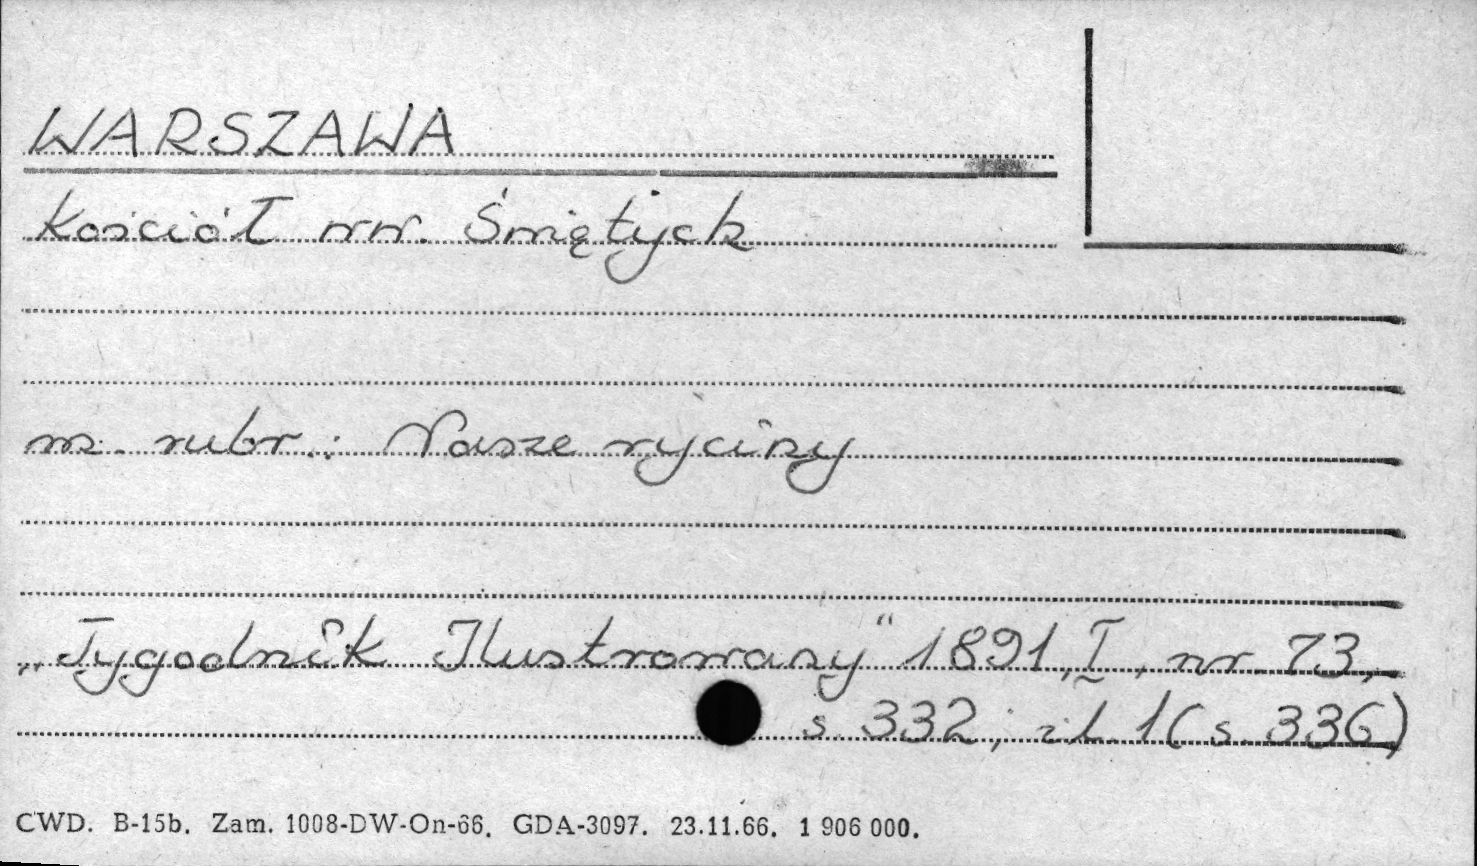 WARSZAWA
Kościół ww. Świętych
w rubr.: Nasze ryciny
„Tygodnik Ilustrowany" 1891, I, nr 73,
s. 332; il. 1 (s. 336)
CWD. B-15b. Zam. 1008-DW-On-66. GDA-3097. 23.11.66. 1 906 000.